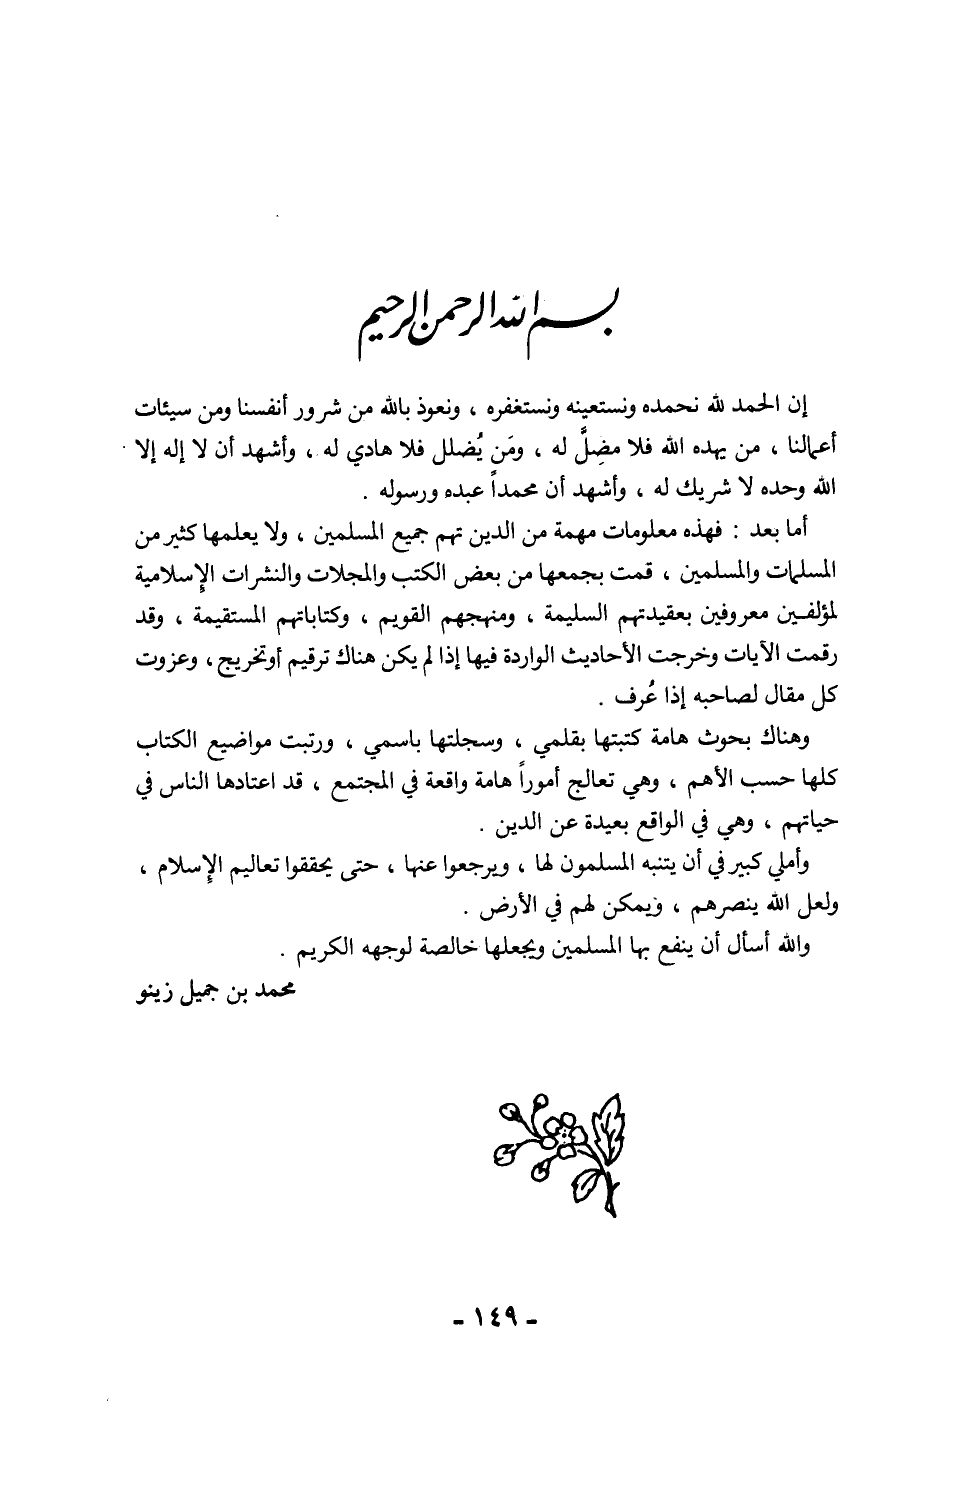 بسم الله الرحمن الرحيم
إن الحمد لله نحمده ونستعينه ونستغفره ، ونعوذ بالله من شرور أنفسنا ومن سيئات
أعمالنا ، من يهده الله فلا مضِلَّ له ، ومَن يُضلل فلا هادي له ، وأشهد أن لا إله إلا
الله وحده لا شريك له ، وأشهد أن محمداً عبده ورسوله .
أما بعد : فهذه معلومات مهمة من الدين تهم جميع المسلمين ، ولا يعلمها كثير من
المسلمات والمسلمين ، قمت بجمعها من بعض الكتب والمجلات والنشرات الإسلامية
لمؤلفين معروفين بعقيدتهم السليمة ، ومنهجهم القويم ، وكتاباتهم المستقيمة ، وقد
رقمت الآيات وخرجت الأحاديث الواردة فيها إذا لم يكن هناك ترقيم أو تخريج ، وعزوت
كل مقال لصاحبه إذا عُرف .
وهناك بحوث هامة كتبتها بقلمي ، وسجلتها باسمي ، ورتبت مواضيع الكتاب
كلها حسب الأهم ، وهي تعالج أموراً هامة واقعة في المجتمع ، قد اعتادها الناس في
حياتهم ، وهي في الواقع بعيدة عن الدين .
وأملي كبير في أن يتنبه المسلمون لها ، ويرجعوا عنها ، حتى يحققوا تعاليم الإسلام ،
ولعل الله ينصرهم ، ويمكن لهم في الأرض .
والله أسأل أن ينفع بها المسلمين ويجعلها خالصة لوجهه الكريم .
محمد بن جميل زينو
- ١٤٩ -